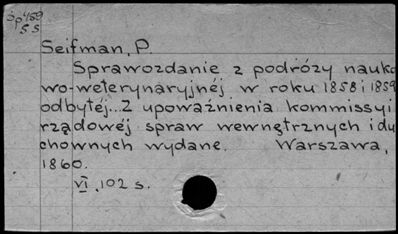 Sp 459
S S
Seifman, P.
Sprawozdanie z podróży nauko
wo-weterynaryjnéj w roku 1858 i 1859
odbytéj... Z upoważnienia kommissyi
rządowéj spraw wewnętrznych i du
chownych wydane. Warszawa,
1860.
VI, 102 s.